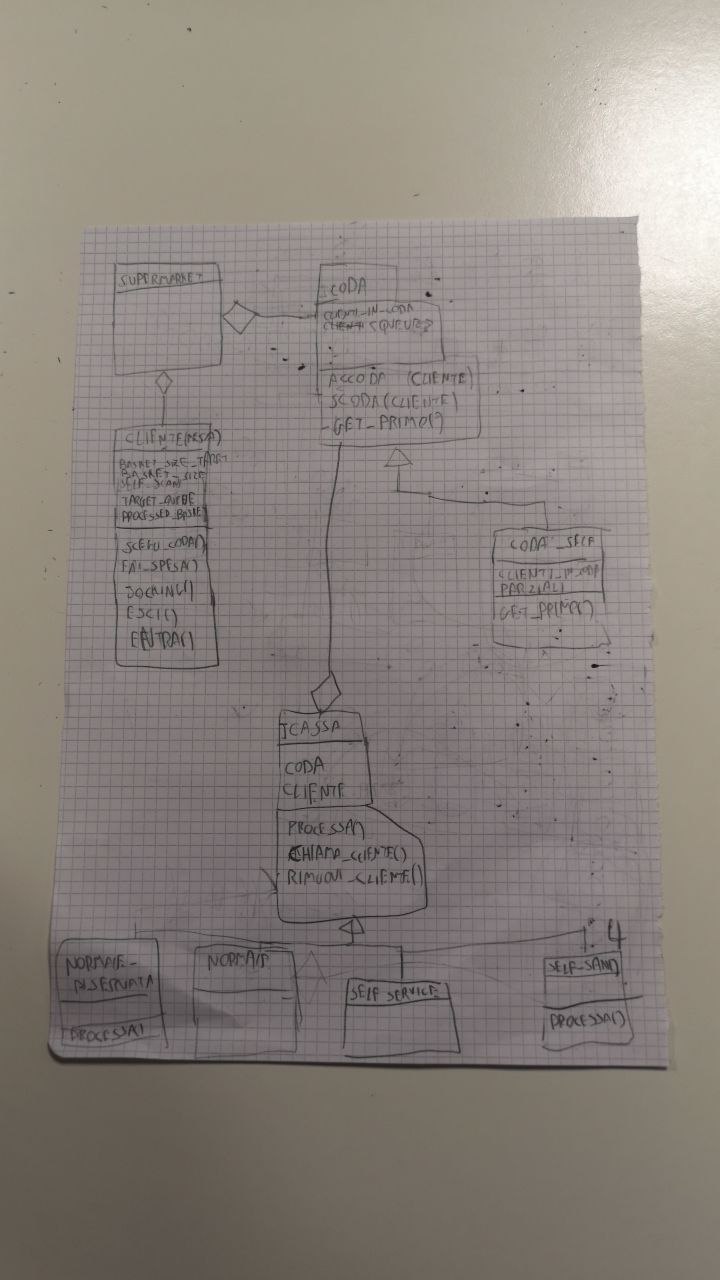 SUPERMARKET
CODA
CLIENTI_IN_CODA
ACCODA (CLIENTE)
SCODA(CLIENTE)
-GET_PRIMO()
CLIENTE(MESA)
BASKET_SIZE_TARGET
BASKET_SIZE
SELF_SCAN
TARGET_QUEUE
PROCESSED_BASKET
FAI_SPESA()
JOCKING()
ESCI()
ENTRA()
CODA_SELF
CLIENTI_IN_CODA
PARZIALI
GET_PRIMO()
ICASSA
CODA
CLIENTE
PROCESSA()
CHIAMA_CLIENTE()
RIMUOVI_CLIENTE()
1:4
NORMALE-
RISERVATA
PROCESSA()
NORMALE
SELF SERVICE
SELF-SCAN
PROCESSA()